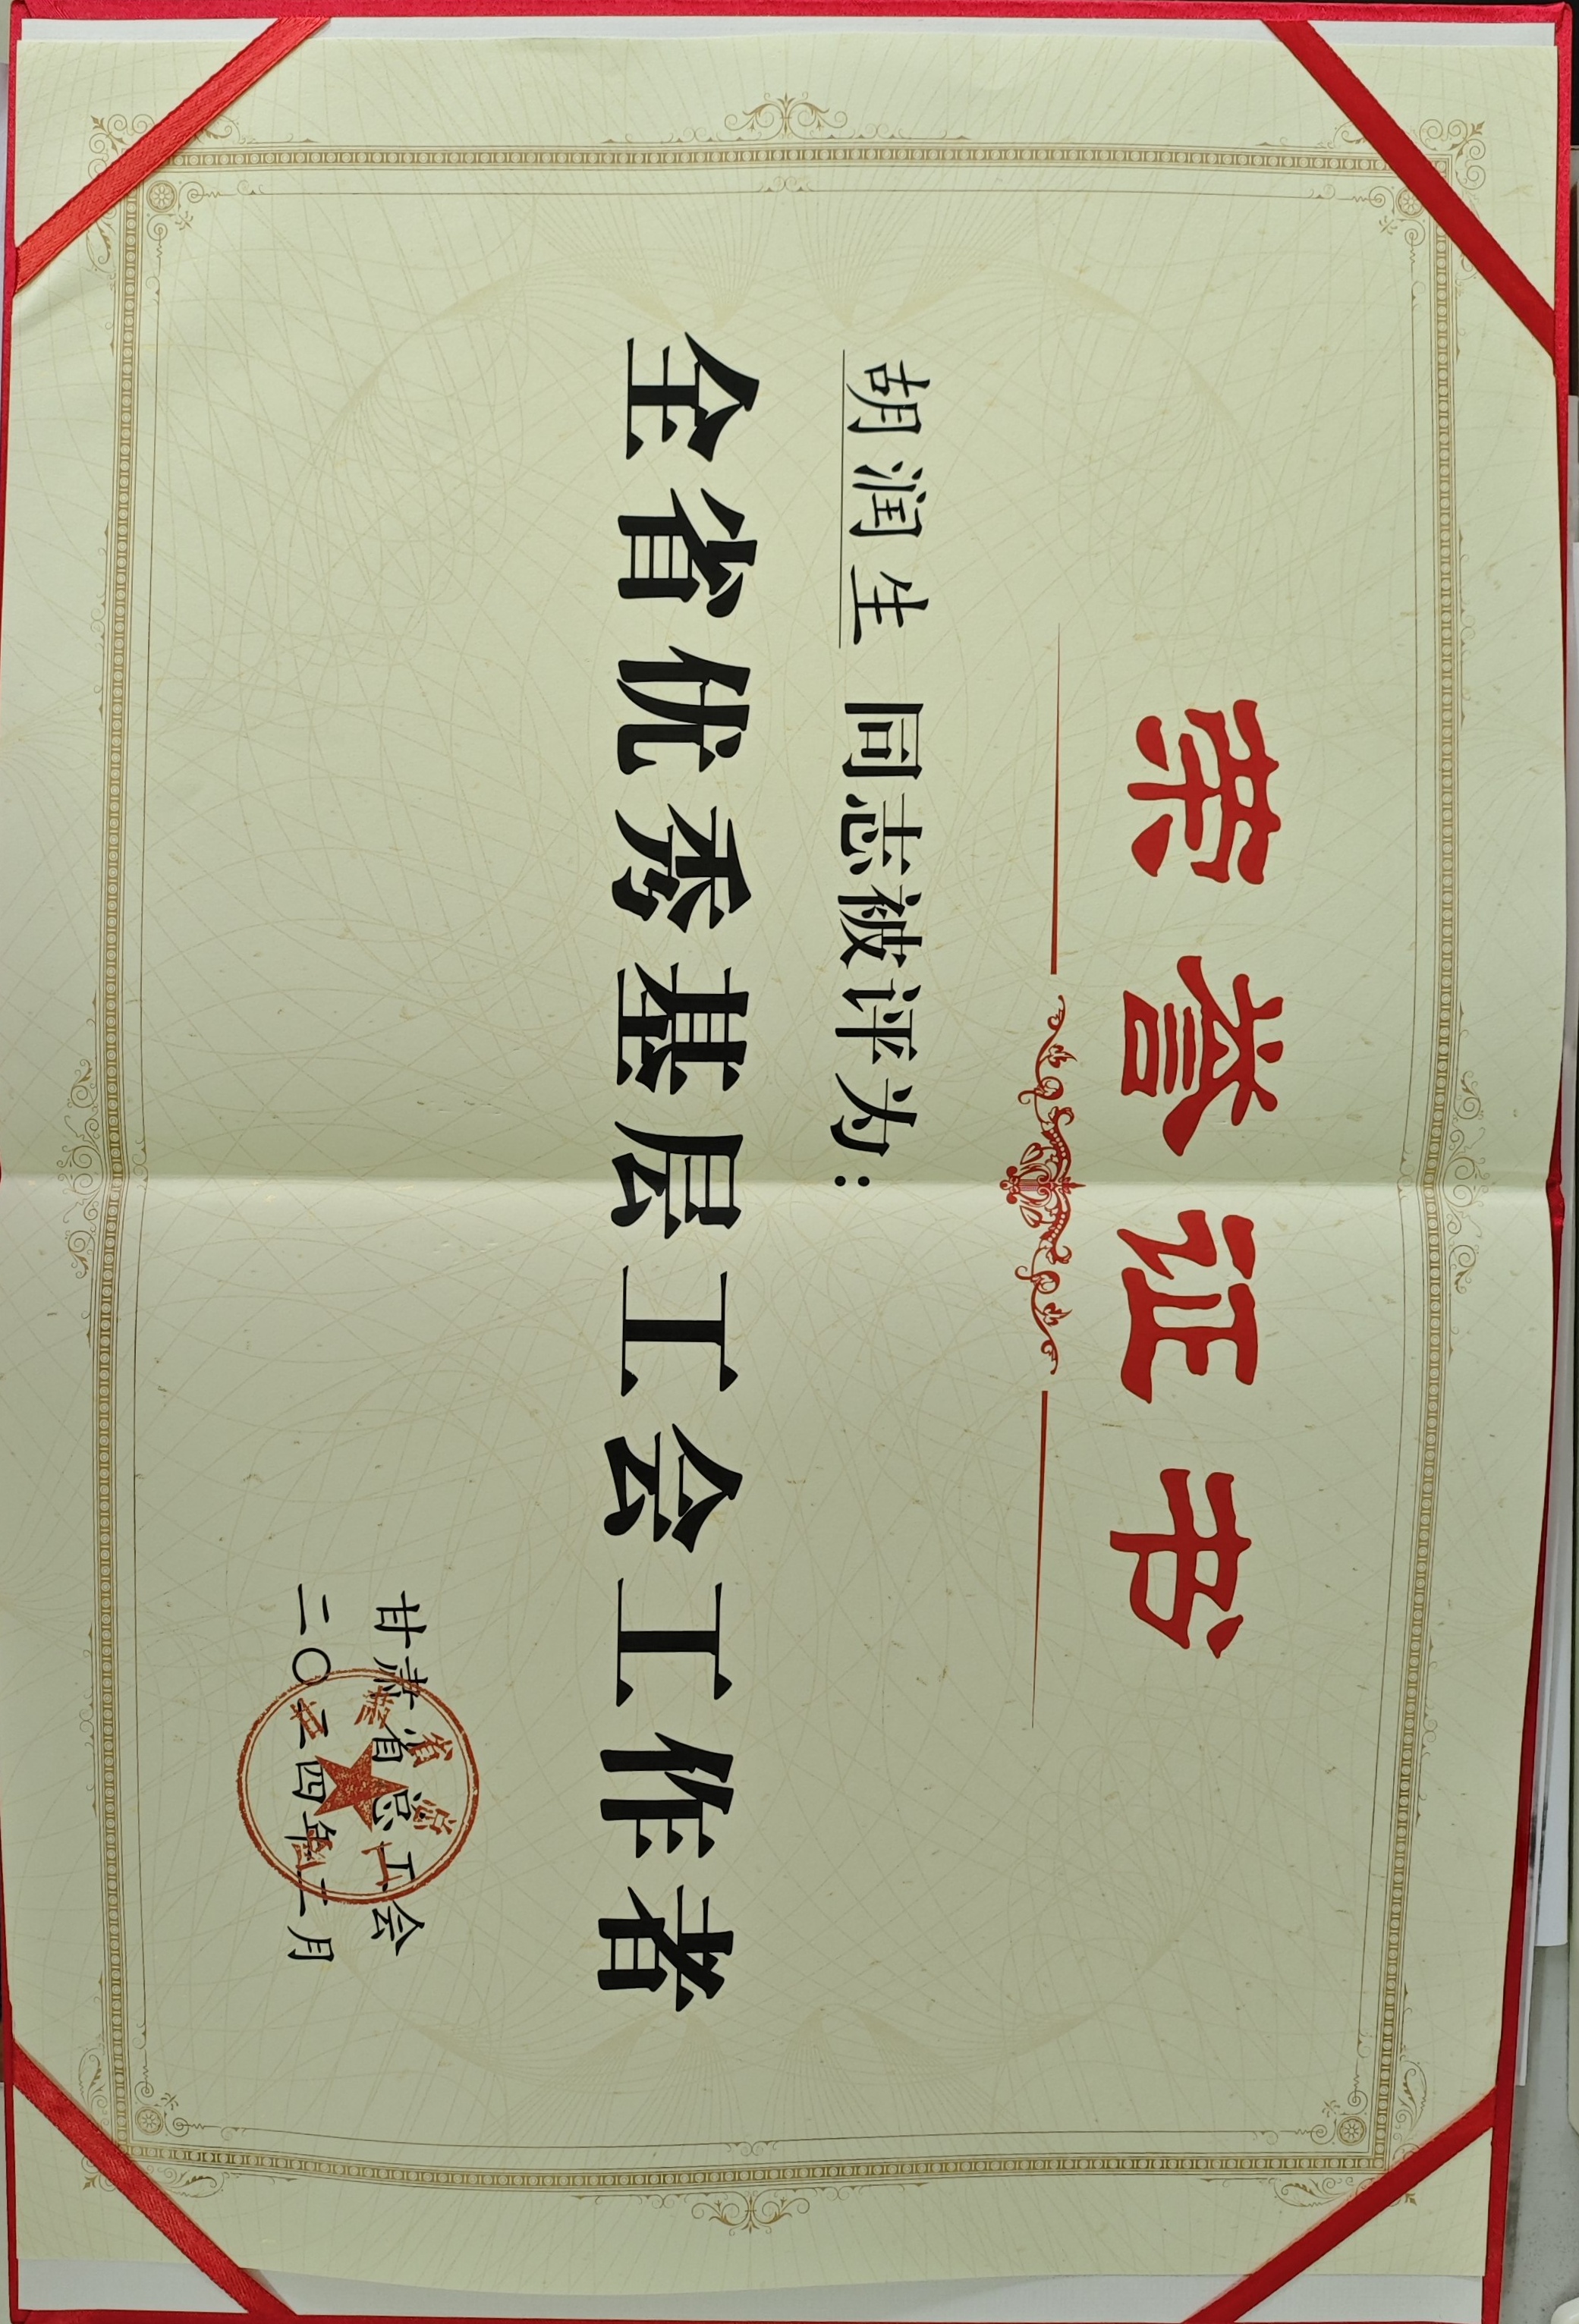 荣誉证书
胡润生 同志被评为：
全省优秀基层工会工作者
甘肃省总工会
二〇二四年二月